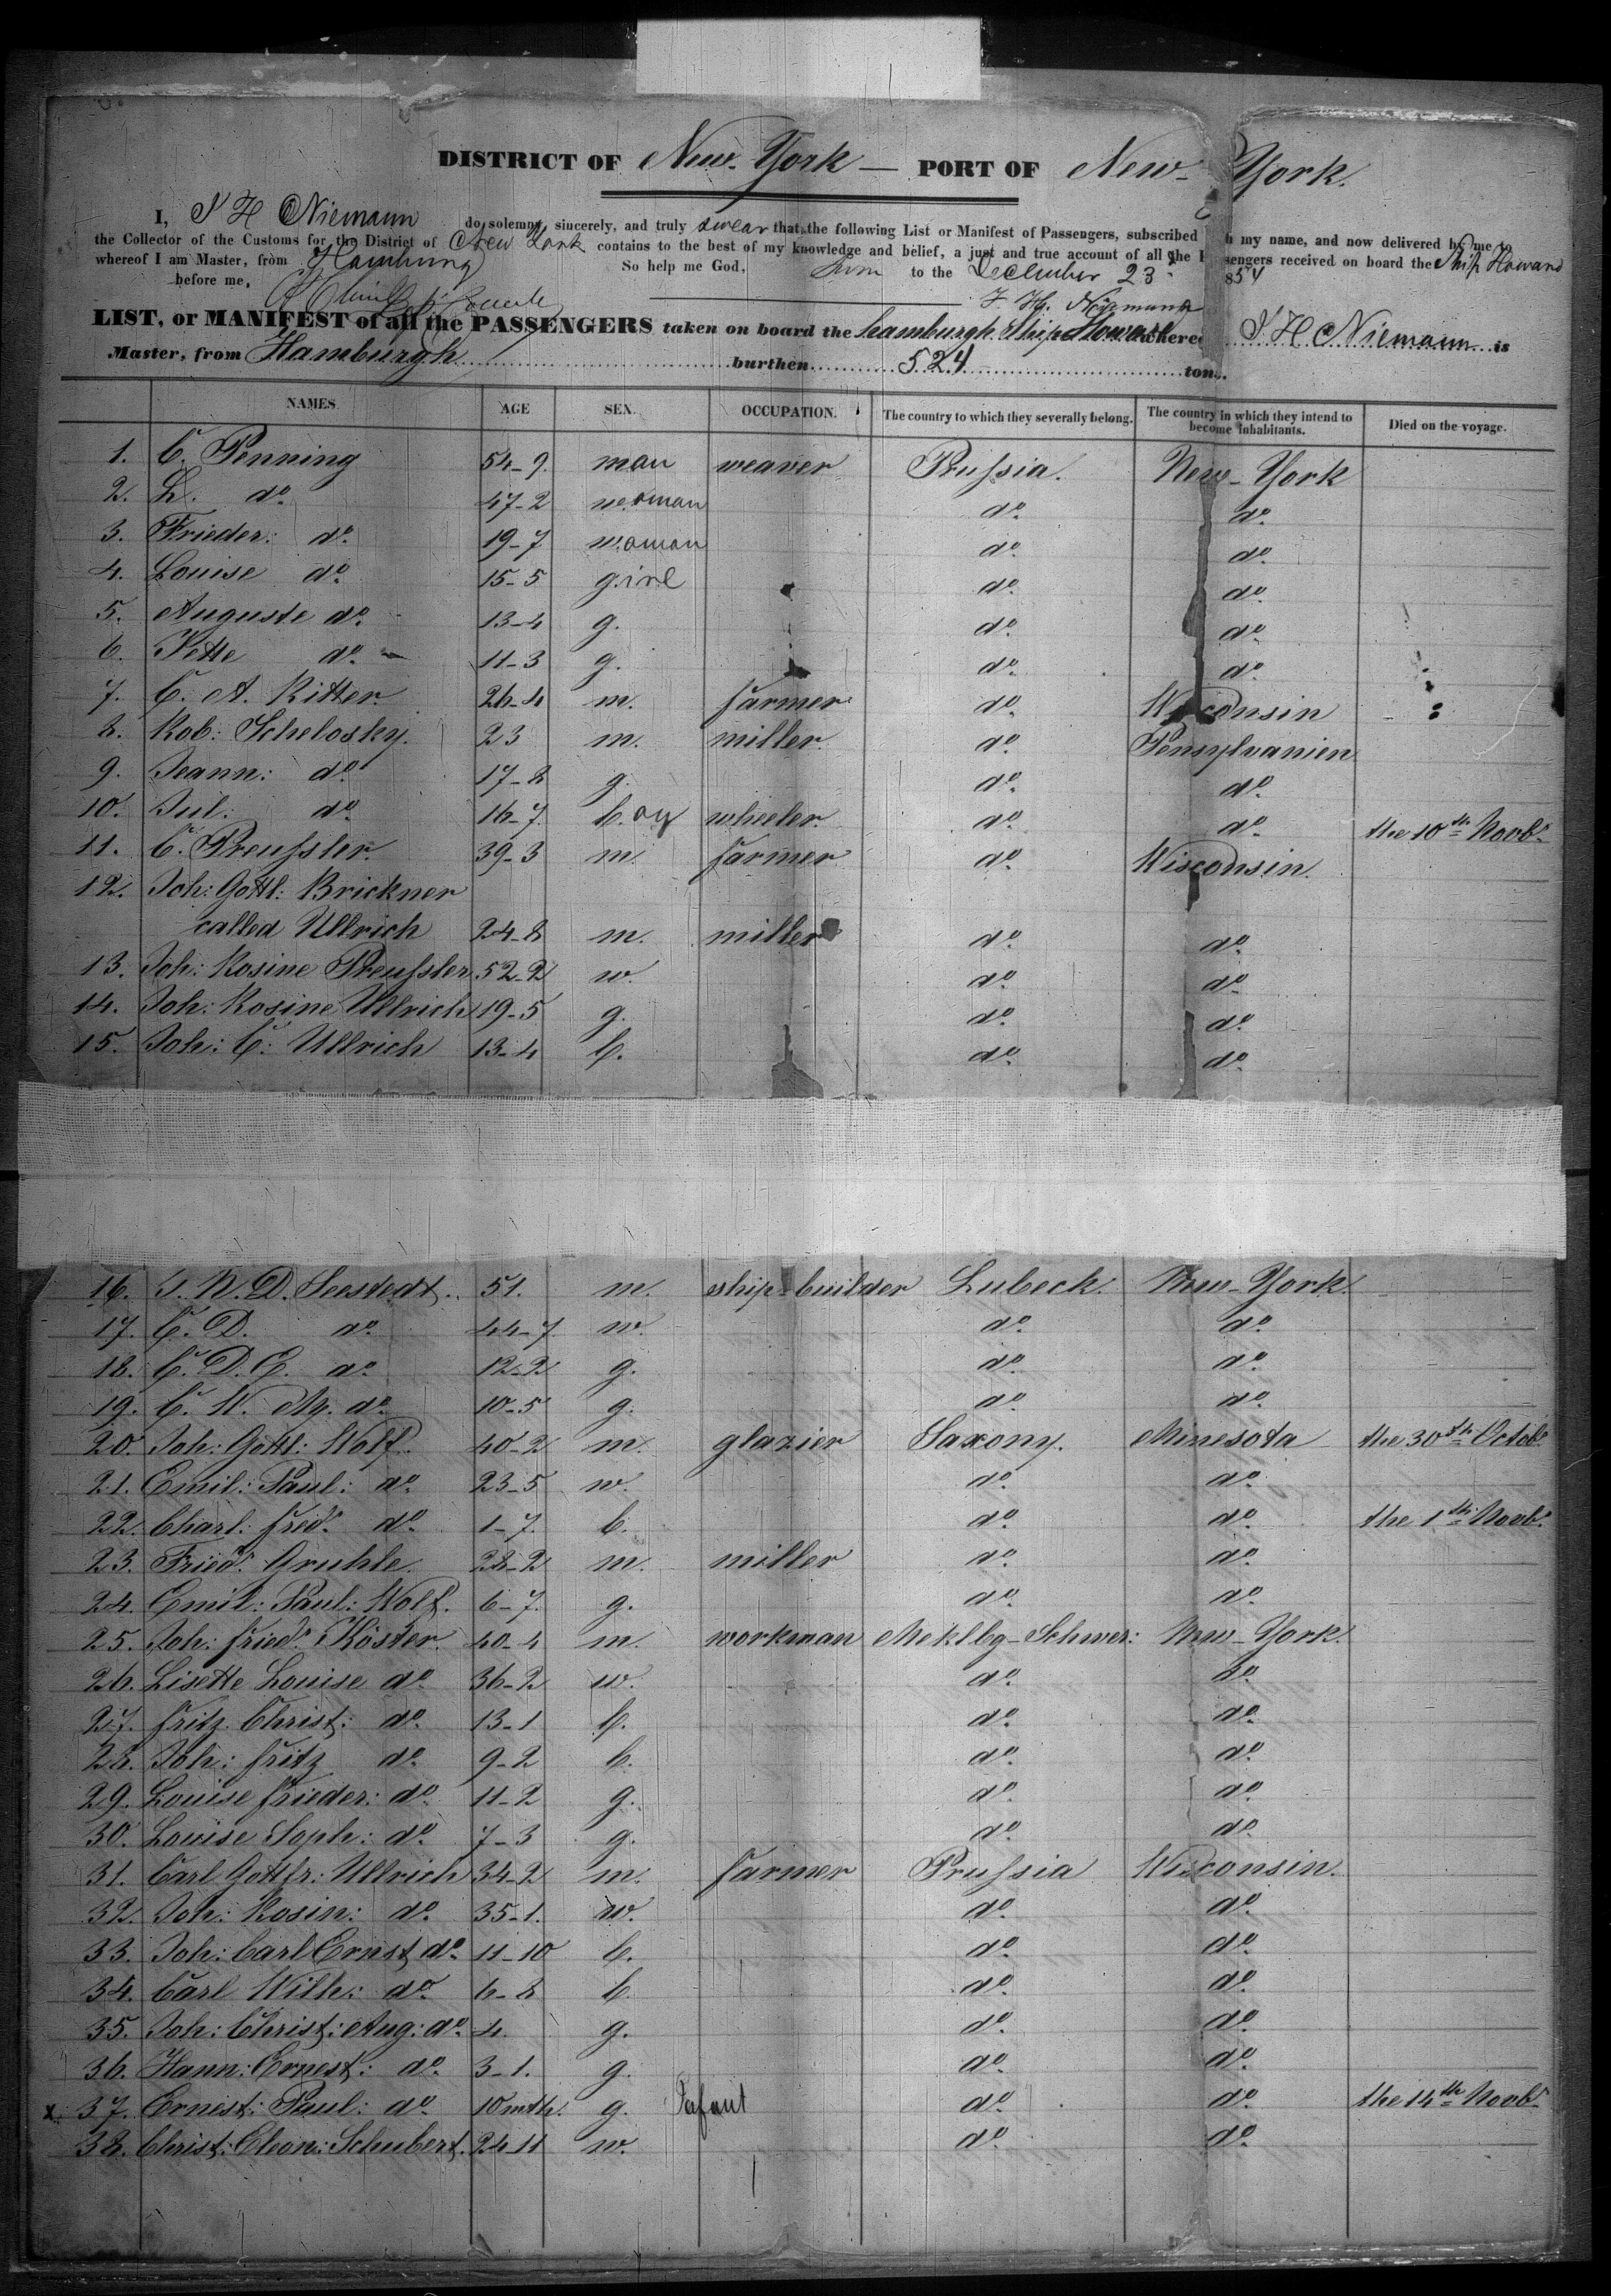 DISTRICT OF New-York — PORT OF New-York.
I, J H Niemann do solemny, sincerely, and truly swear that the following List or Manifest of Passengers, subscribed h my name, and now delivered by me to
the Collector of the Customs for the District of New York contains to the best of my knowledge and belief, a just and true account of all the P sengers received on board the Ship Howard
whereof I am Master, from Hamburg So help me God, to the December 23 854
before me, J. H. Niemann
LIST, or MANIFEST of all the PASSENGERS taken on board the hamburgh Ship Howard whereo J H Niemann is
Master, from Hamburgh burthen 524 tons.
NAMES AGE SEX. OCCUPATION. The country to which they severally belong. The country in which they intend to become inhabitants. Died on the voyage.
1. C. Penning 54-9. man weaver Prussia. New-York
2. L. do 47-2 woman do do
3. Frieder: do 19-7 woman do do
4. Louise do 15-5 girl do do
5. Auguste do 13-4 g. do do
6. Jette do 11-3 g. do do
7. C. A. Ritter. 26-4 m. farmer do Wisconsin
8. Rob: Schelosky. 23 m. miller. do Pensylvanien
9. Jeann: do 17-8 g. do do
10. Jul: do 16-7. boy wheeler. do do the 10th Novbr
11. C. Preussler. 39-3 m. farmer do Wisconsin.
12. Joh: Gottl: Brickner
called Ullrich 24-8 m. miller do do
13. Joh: Rosine Preussler 52-2 w. do do
14. Joh: Rosine Ullrich 19-5 g. do do
15. Joh: C: Ullrich 13-4 b. do do
16. J. N. D. Seestedt. 51. m. ship-builder Lubeck. New-York.
17. C. D. do 44-7. w. do do
18. C. D. E. do 12-2 g. do do
19. C. W. M. do 10-5 g. do do
20. Joh: Gottl: Wolf. 40-2 m. glazier Saxony. Minesota the 30th Octobr
21. Emil: Paul: do 23-5 w. do do
22. Charl. fredr do 1-7. b. do do the 1th Novbr
23. Friedr Gruhle. 28-2 m. miller do do
24. Emil: Paul: Wolf. 6-7. g. do do
25. Joh: friedr Köster 40-4 m. workman Meklbg-Schwer: New-York.
26. Lisette Louise do 36-2 w. do do
27. fritz Christ: do 13-1 b. do do
28. Joh: fritz do 9-2 b. do do
29. Louise frieder: do 11-2 g. do do
30. Louise Soph: do 7-3 g. do do
31. Carl Gottfr: Ullrich 34-2 m. farmer Prussia Wisconsin.
32. Joh: Rosin: do 35-1. w. do do
33. Joh: Carl Ernst do 11-10 b. do do
34. Carl Wilh: do 6-8 b. do do
35. Joh: Christ: Aug: do 4. g. do do
36. Hann: Ernest: do 3-1. g. do do
x 37. Ernest: Paul: do 10 mth. g. Infant do do the 14th Novbr
38. Christ: Eleon: Schubert. 24-11 w. do do